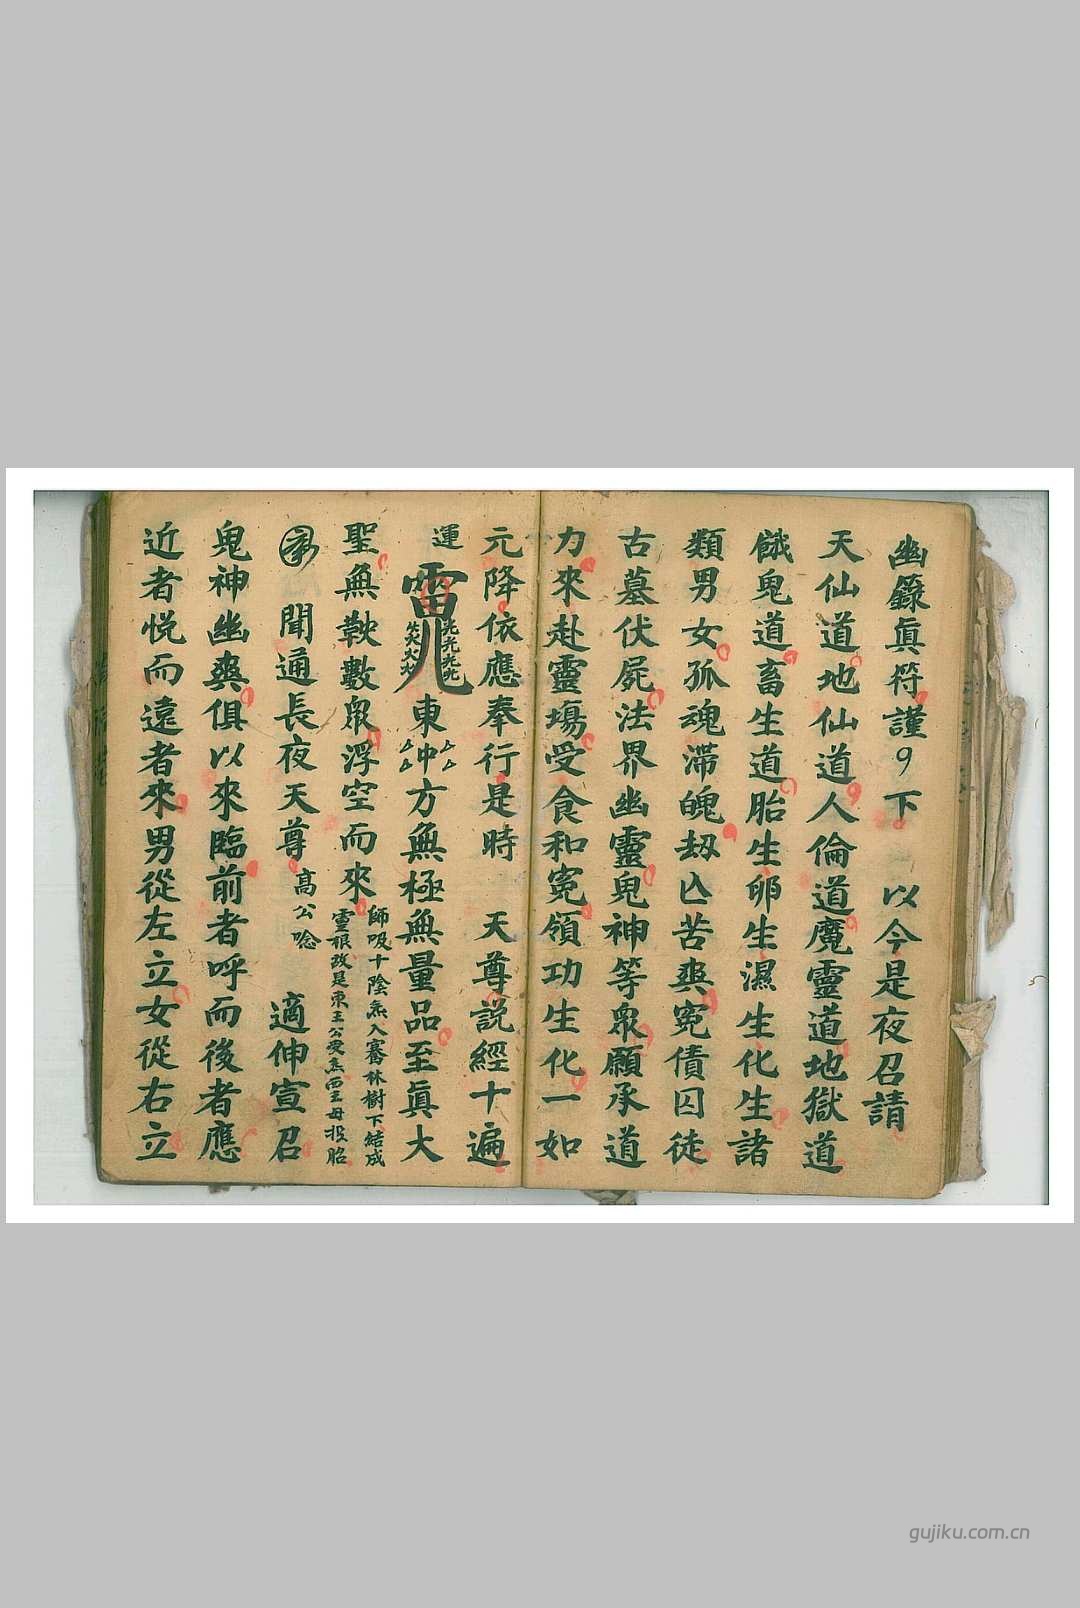 幽籙眞符謹 下 以今是夜召請
天仙道地仙道人倫道魔靈道地獄道
餓鬼道畜生道胎生卵生濕生化生諸
類男女孤魂滯魄刼亾苦爽寃債囚徒
古墓伏屍法界幽靈鬼神等衆願承道
力來赴靈塲受食和寃領功生化一如
元降依應奉行是時 天尊説經十遍
運 東 方無極無量品至眞大
聖無鞅數衆浮空而來
師吸十陰炁入騫林樹下結成
靈根改是東王公 炁西王母投胎
聞通長夜天尊 高公唸 適伸宣召
鬼神幽爽俱以來臨前者呼而後者應
近者悦而遠者來男從左立女從右立
gujiku.com.cn